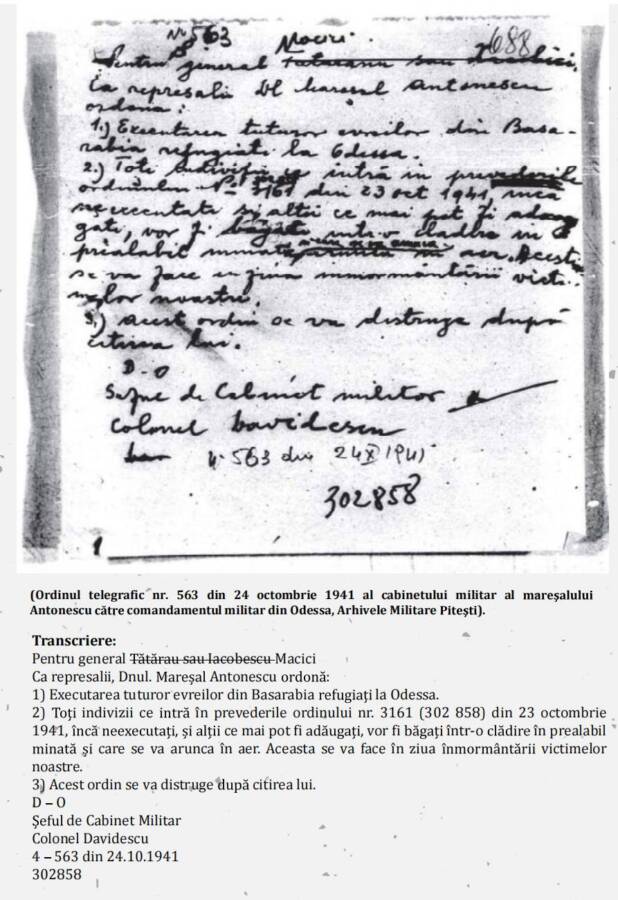 No 563
Macici.
688
Pentru general tutueanu sau Iacobici,
Ca represalii Dl Maresal Antonescu
ordona:
1.) Executarea tuturor evreilor din Basa-
rabia refugiati la Odessa.
2.) Toti indivizii ce intră in prevederile
ordinului No 3161 din 23 oct 1941, inca
neexecutati si altii ce mai pot fi adau
gati, vor fi băgati intr-o cladire in
prealabil minata in aer. Aceasta
se va face in ziua inmormântării victi-
melor noastre.
3.) Acest ordin se va distruge după
citirea lui.
D-O
Seful de Cabinet militar
Colonel Davidescu
4-563 din 24 X 1941
302858
1
(Ordinul telegrafic nr. 563 din 24 octombrie 1941 al cabinetului militar al mareșalului
Antonescu către comandamentul militar din Odessa, Arhivele Militare Pitești).
Transcriere:
Pentru general Tătărau sau Iacobescu Macici
Ca represalii, Dnul. Mareșal Antonescu ordonă:
1) Executarea tuturor evreilor din Basarabia refugiați la Odessa.
2) Toți indivizii ce intră în prevederile ordinului nr. 3161 (302 858) din 23 octombrie
1941, încă neexecutați, și alții ce mai pot fi adăugați, vor fi băgați într-o clădire în prealabil
minată și care se va arunca în aer. Aceasta se va face în ziua înmormântării victimelor
noastre.
3) Acest ordin se va distruge după citirea lui.
D – O
Șeful de Cabinet Militar
Colonel Davidescu
4 – 563 din 24.10.1941
302858